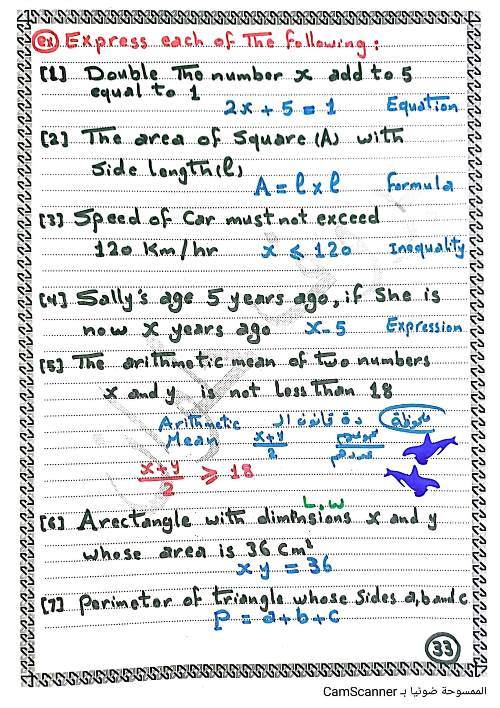 ex Express each of The following :
[1] Double The number x add to 5
equal to 1
2x + 5 = 1 Equation
[2] The area of Square (A) with
Side Length(l)
A = l x l Formula
[3] Speed of Car must not exceed
120 Km/hr x ⩽ 120 Inequality
[4] Sally's age 5 years ago, if She is
now x years ago x - 5 Expression
[5] The arithmetic mean of two numbers
x and y is not Less Than 18
Arithmetic ده قانون ال ملحوظة
Mean x+y/2 مجموعهم/عددهم
x+y/2 ⩾ 18
L . w
[6] A rectangle with dimensions x and y
whose area is 36 cm²
x y = 36
[7] Perimeter of triangle whose Sides a, b and c
P = a + b + c
33
الممسوحة ضوئيا بـ CamScanner